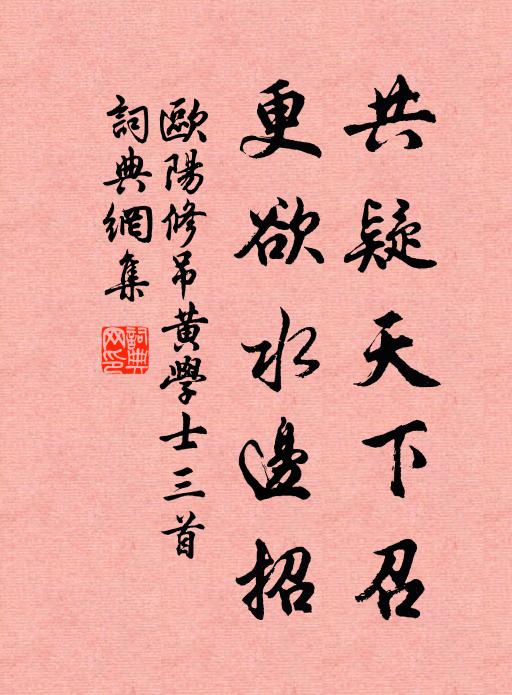 共疑天下召
更欲水邊招
歐陽修吊黃學士三首
詞典網集
詞典网印